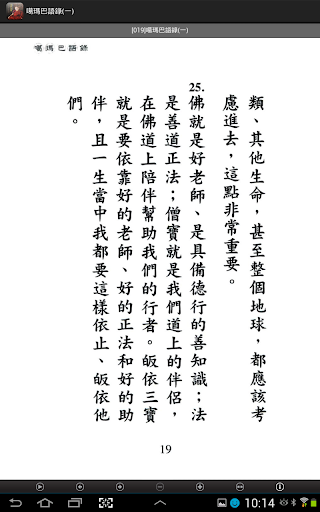 噶瑪巴語錄(一)
[019]噶瑪巴語錄(一)
噶瑪巴語錄
類、其他生命，甚至整個地球，都應該考
慮進去，這點非常重要。
25.
佛就是好老師、是具備德行的善知識；法
是善道正法；僧寶就是我們道上的伴侶，
在佛道上陪伴幫助我們的行者。皈依三寶
就是要依靠好的老師、好的正法和好的助
伴，且一生當中我都要這樣依止、皈依他
們。
19
10:14